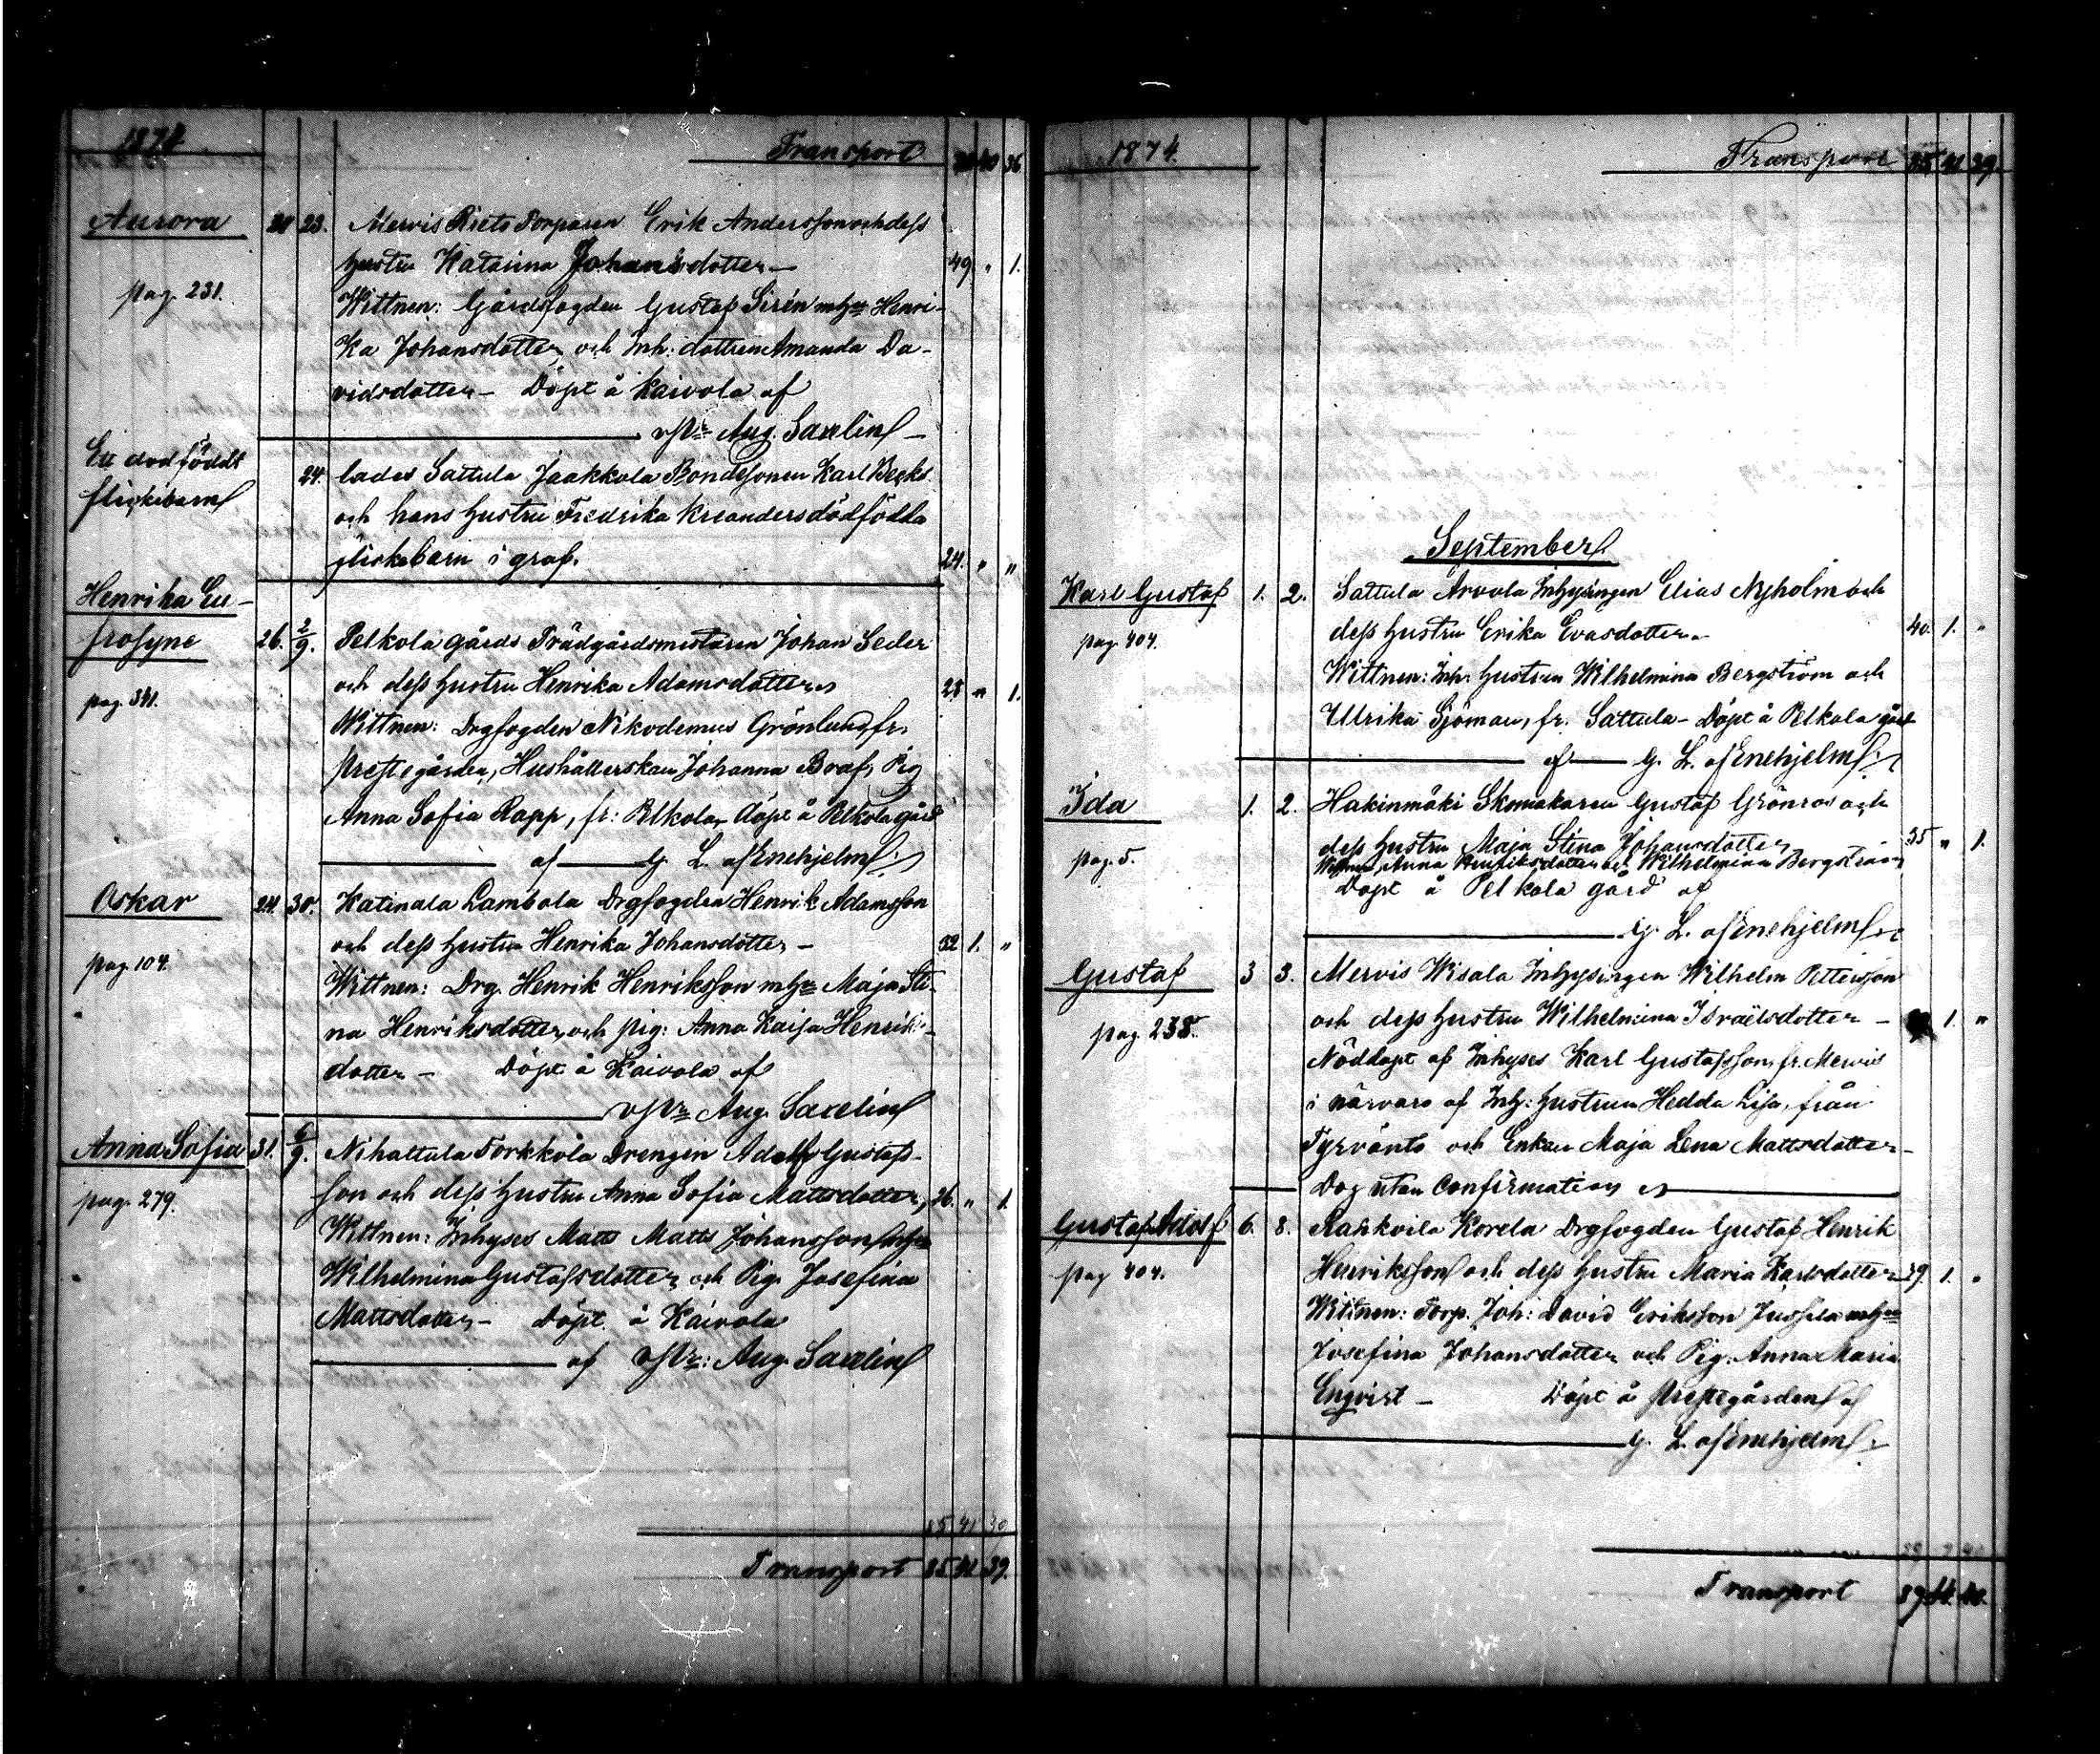 1874 Transport 40 36
Aurora 23. Mervis Rieto Torparen Erik Andersson och dess
hustru Katarina Johansdotter – 49 " 1.
pag. 231. Wittnen: Gårdsfogden Gustaf Sirén m hu Henri-
ka Johansdotter och Inh. dottren Amanda Da-
vidsdotter – Döpt å Kaivola af
v Pr Aug. Saxelin –
Ett dödfödt
flickebarn 24. lades Sattula Jaakkola Bondesonen Karl Becks
och hans hustru Fredrika Kreanders dödfödda
flickebarn i graf. 24. " "
Henrika Eu-
frosyne 26. 2/9. Pelkola gårds Trädgårdsmästaren Johan Seder
och dess hustru Henrika Adamsdotter 28 " 1.
pag. 341. Wittnen: Drgfogden Nikodemus Grönlund, fr.
Prestegården, Hushållerskan Johanna Boaf, Pig
Anna Sofia Rapp, fr: Pelkola, döpt å Pelkola gård
af G. L. af Enehjelm
Oskar 24. 30. Katinala Lambola Drgfogden Henrik Adamsson
och dess hustru Henrika Johansdotter – 32 1. "
pag. 104. Wittnen: Drg. Henrik Henriksson m hu Maja Sti-
na Henriksdotter och pig: Anna Kaisa Henriks-
dotter – Döpt å Kaivola af
v Pr Aug. Saxelin
Anna Sofia 31. 6/9. Nihattula Torkkola Drengen Adolf Gustafs-
son och dess hustru Anna Sofia Mattsdotter, 26. " 1.
pag. 279. Wittnen: Inhyses Matts Matts Johansson m hu
Wilhelmina Gustafsdotter och Pig. Josefina
Mattsdotter – Döpt å Kaivola
af v Pr: Aug. Saxelin
35 41 39
Transport 35 41 39.
1874. Transport 35 41 39.
September
Karl Gustaf 1. 2. Sattula Arvola Inhysingen Elias Nyholm och
pag. 404. dess hustru Erika Evasdotter – 40. 1. "
Wittnen: Inh: hustrun Wilhelmina Bergström och
Ulrika Sjöman, fr. Sattula – Döpt å Pelkola gård
af G. L. af Enehjelm
Ida 1. 2. Hakinmäki Skomakaren Gustaf Grönros och
pag. 5. dess hustru Maja Stina Johansdotter 35 " 1.
Wittnen, Anna Henriksdotter och Wilhelmina Bergström
Döpt å Pelkola gård af
G. L. af Enehjelm
Gustaf 3 3. Mervis Wisala Inhysingen Wilhelm Pettersson
pag. 238. och dess hustru Wilhelmina Israëlsdotter – 1. "
Nöddöpt af Inhyses Karl Gustafsson, fr. Mervis
i närvaro af Inh: hustrun Hedda Lisa, från
Tyrväntö och Enkan Maja Lena Mattsdotter –
Dog utan Confirmation
Gustaf Adolf 6. 8. Rahkoila Korela Drgfogden Gustaf Henrik
pag 404. Henriksson och dess hustru Maria Karlsdotter 29. 1. "
Wittnen: Torp. Joh: David Eriksson Jussila m hu
Josefina Johansdotter och Pig. Anna Maria
Enqvist – Döpt å Prestegården af
G. L. af Enehjelm
Transport 39 44. 40.